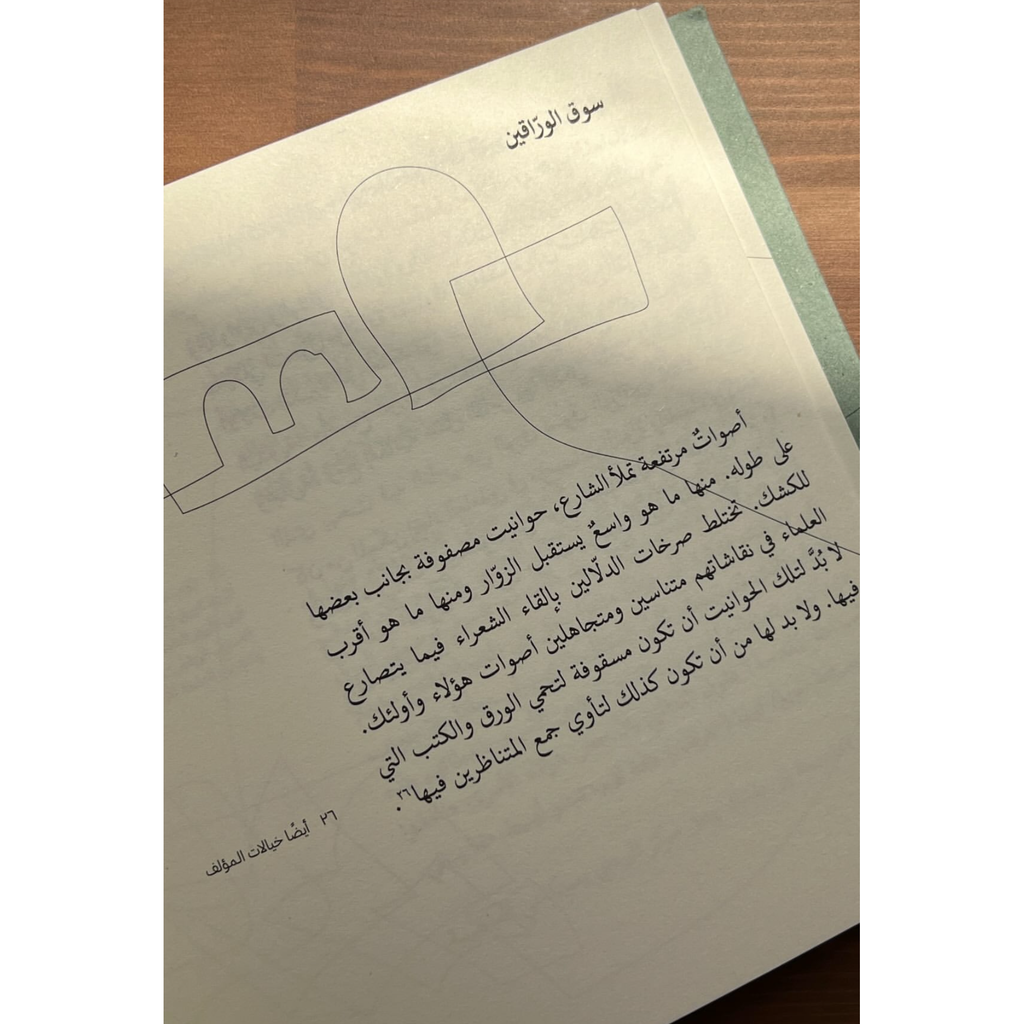 سوق الورّاقين
أصواتٌ مرتفعة تملأ الشارع، حوانيت مصفوفة بجانب بعضها
على طوله. منها ما هو واسعٌ يستقبل الزوّار ومنها ما هو أقرب
للكشك. تختلط صرخات الدلّالين بإلقاء الشعراء فيما يتصارع
العلماء في نقاشاتهم متناسين ومتجاهلين أصوات هؤلاء وأولئك.
لا بُدَّ لتلك الحوانيت أن تكون مسقوفة لتحمي الورق والكتب التي
فيها. ولا بد لها من أن تكون كذلك لتأوي جمع المتناظرين فيها٢٦.
٢٦ أيضًا خيالات المؤلف